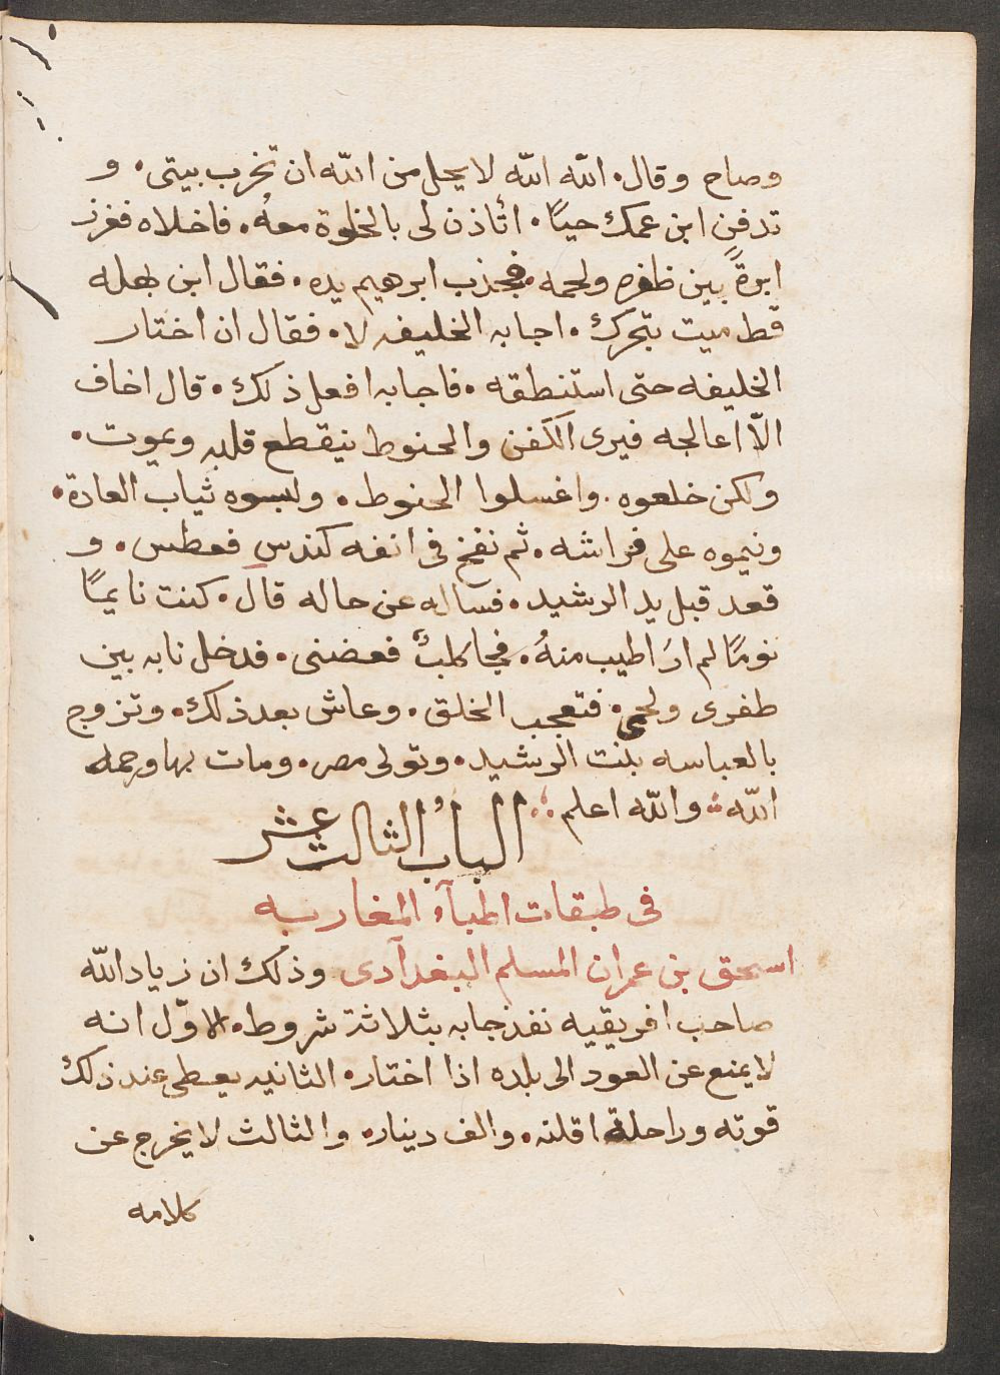 وصاح وقال. الله الله لا يحل من الله ان تخرب بيتى. و
تدفن ابن عمك حيًا. أتاذن لى بالخلوة معهُ. فاخلاه فغرز
ابرةً بين ظفره ولحمه. فجذب ابرهيم يده. فقال ابن بهله
قط ميت بتحرك. اجابه الخليفه لا. فقال ان اختار
الخليفه حتى استنطقه. فاجابه افعل ذلك. قال اخاف
الّا اعالجه فيرى الكفن والحنوط نيقطع قلبه ويموت.
ولكن خلعوه. واغسلوا الحنوط. ولبسوه ثياب العادة.
ونيموه على فراشه. ثم نفخ فى انفه كندس فعطس. و
قعد قبل يد الرشيد. فساله عن حاله قال. كنت نايمًا
نومًا لم ارَ اطيب منهُ. فجا كلبٌ فعضنى. فدخل نابه بين
طفرى ولحمى. فتعجب الخلق. وعاش بعد ذلك. وتزوج
بالعباسه بنت الرشيد. وتولى مصر. ومات بها ورحمه
الله. والله اعلم
البابُ الثالث عشر
فى طبقات اطبآء المغاربه
اسحق بن عمران المسلم البغدآدى وذلك ان زياد الله
صاحب افريقيه نفذ جابه بثلاثة شروط. الاوّل انه
لا يمنع عن العود الى بلده اذا اختار. الثانيه يعطى عند ذلك
قوته وراحلة اقلته. والف دينار. والثالث لا يخرج عن
كلامه